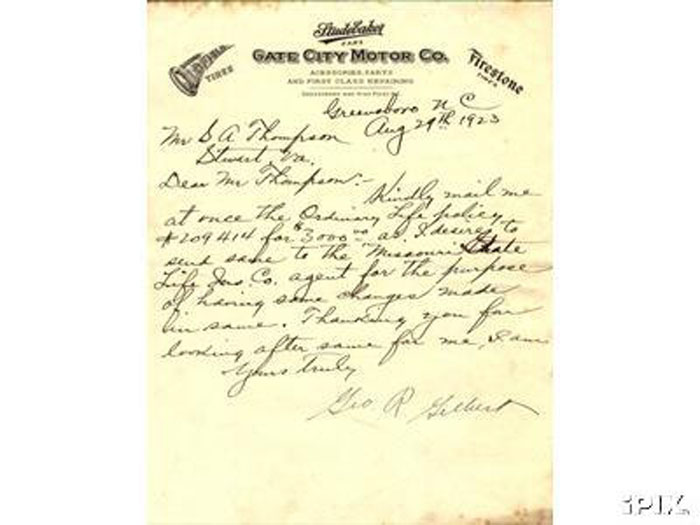 Studebaker
CARS
GATE CITY MOTOR CO.
OLDFIELD
TIRES
Firestone
TIRES
ACCESSORIES, PARTS
AND FIRST CLASS REPAIRING
Greensboro N C
Aug 29th 1923
Mr S A Thompson
Stuart, Va.
Dear Mr Thompson:-
Kindly mail me
at once the Ordinary Life policy
#209414 for $3000 00 as I desire to
send same to the Missouri State
Life Ins. Co. agent for the purpose
of having some changes made
in same. Thanking you for
looking after same for me, I am
Yours truly
Geo R Gilbert
iPIX